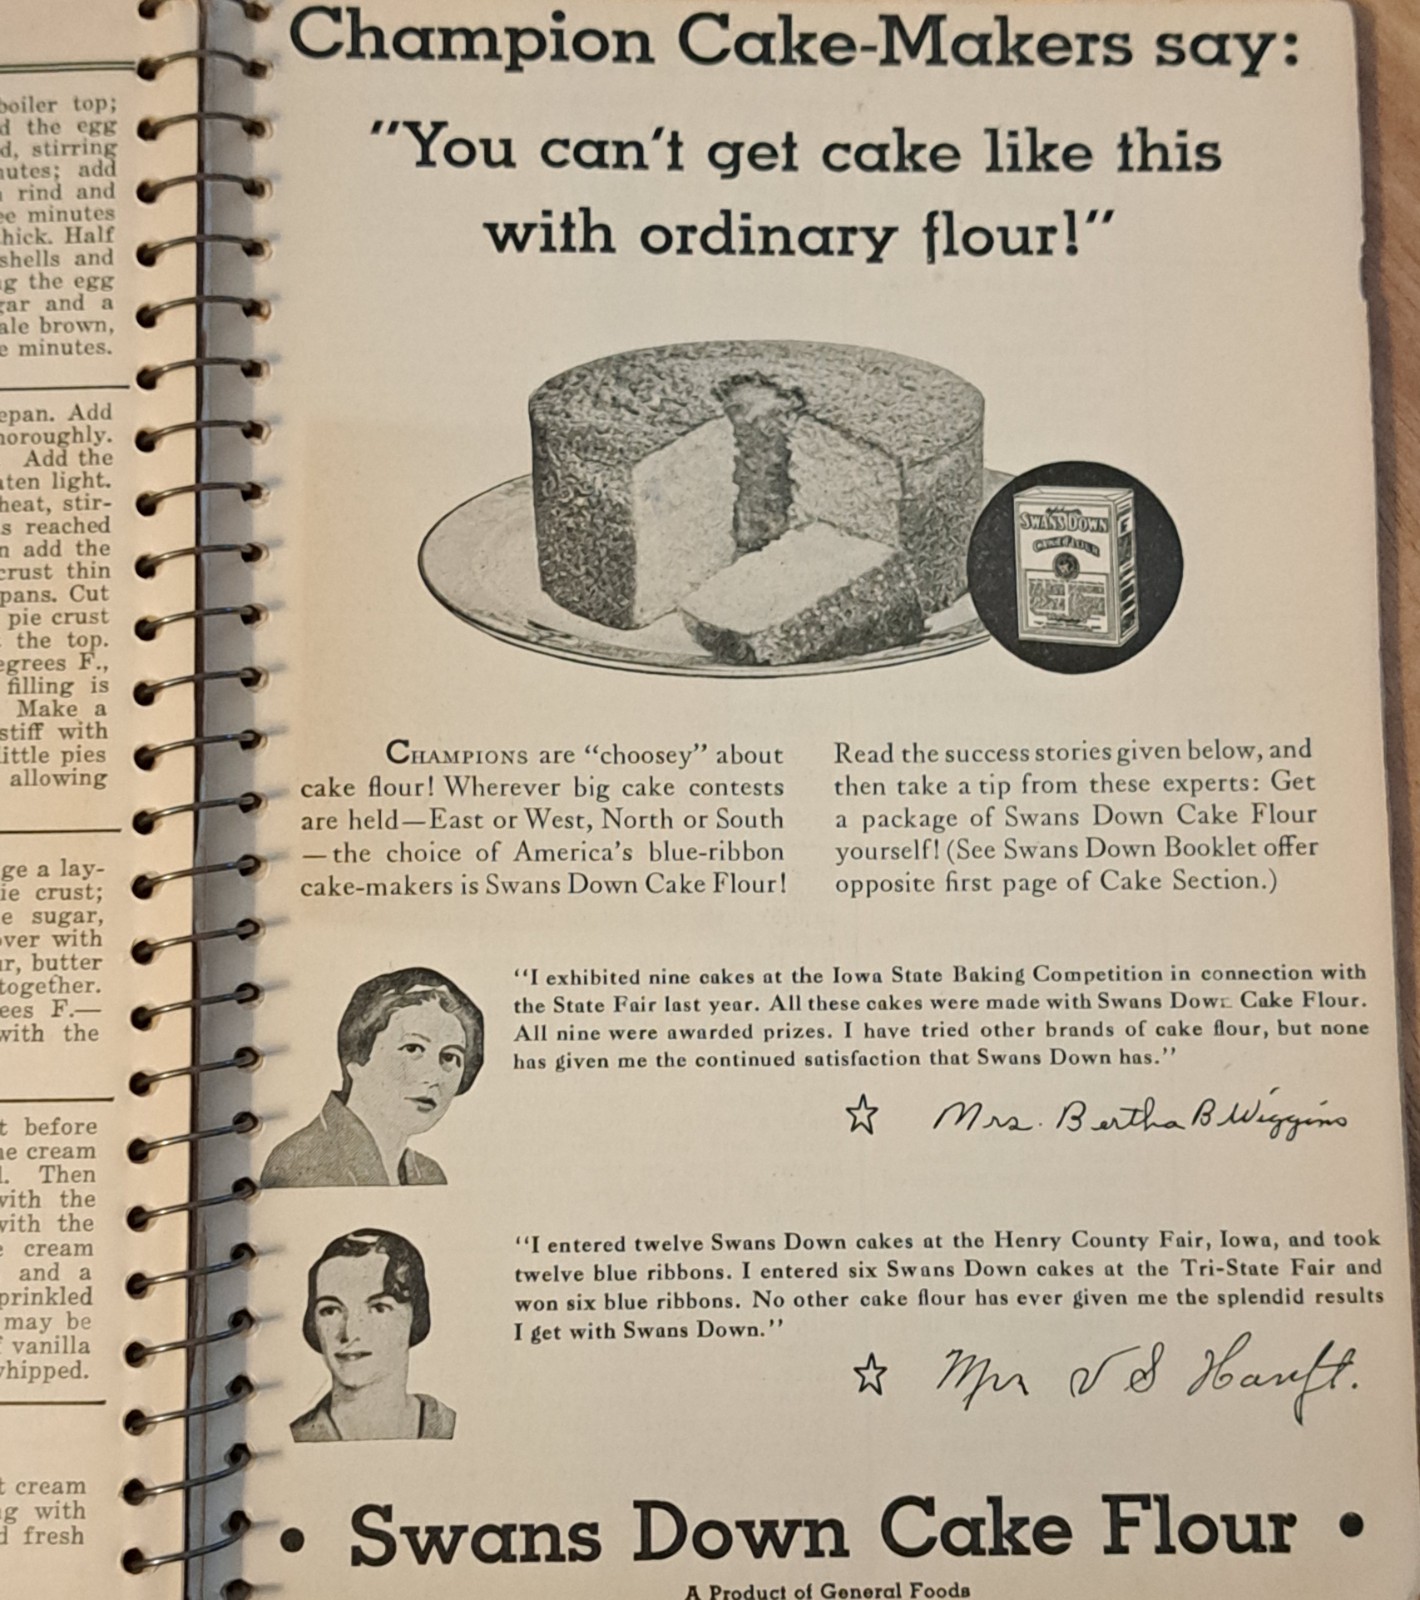 boiler top;
d the egg
d, stirring
nutes; add
rind and
ee minutes
thick. Half
shells and
ng the egg
gar and a
ale brown,
e minutes.
epan. Add
horoughly.
Add the
aten light.
heat, stir-
s reached
n add the
crust thin
pans. Cut
pie crust
the top.
egrees F.,
filling is
Make a
stiff with
little pies
allowing
ge a lay-
ie crust;
e sugar,
over with
ur, butter
together.
ees F.—
with the
t before
he cream
l. Then
with the
with the
e cream
and a
prinkled
may be
f vanilla
whipped.
t cream
ng with
d fresh
Champion Cake-Makers say:
"You can't get cake like this
with ordinary flour!"
SWANS DOWN
CAKE FLOUR
CHAMPIONS are "choosey" about
cake flour! Wherever big cake contests
are held—East or West, North or South
—the choice of America's blue-ribbon
cake-makers is Swans Down Cake Flour!
Read the success stories given below, and
then take a tip from these experts: Get
a package of Swans Down Cake Flour
yourself! (See Swans Down Booklet offer
opposite first page of Cake Section.)
"I exhibited nine cakes at the Iowa State Baking Competition in connection with
the State Fair last year. All these cakes were made with Swans Down Cake Flour.
All nine were awarded prizes. I have tried other brands of cake flour, but none
has given me the continued satisfaction that Swans Down has."
☆ Mrs. Bertha B Wiggins
"I entered twelve Swans Down cakes at the Henry County Fair, Iowa, and took
twelve blue ribbons. I entered six Swans Down cakes at the Tri-State Fair and
won six blue ribbons. No other cake flour has ever given me the splendid results
I get with Swans Down."
☆ Mrs V S Hanft.
• Swans Down Cake Flour •
A Product of General Foods